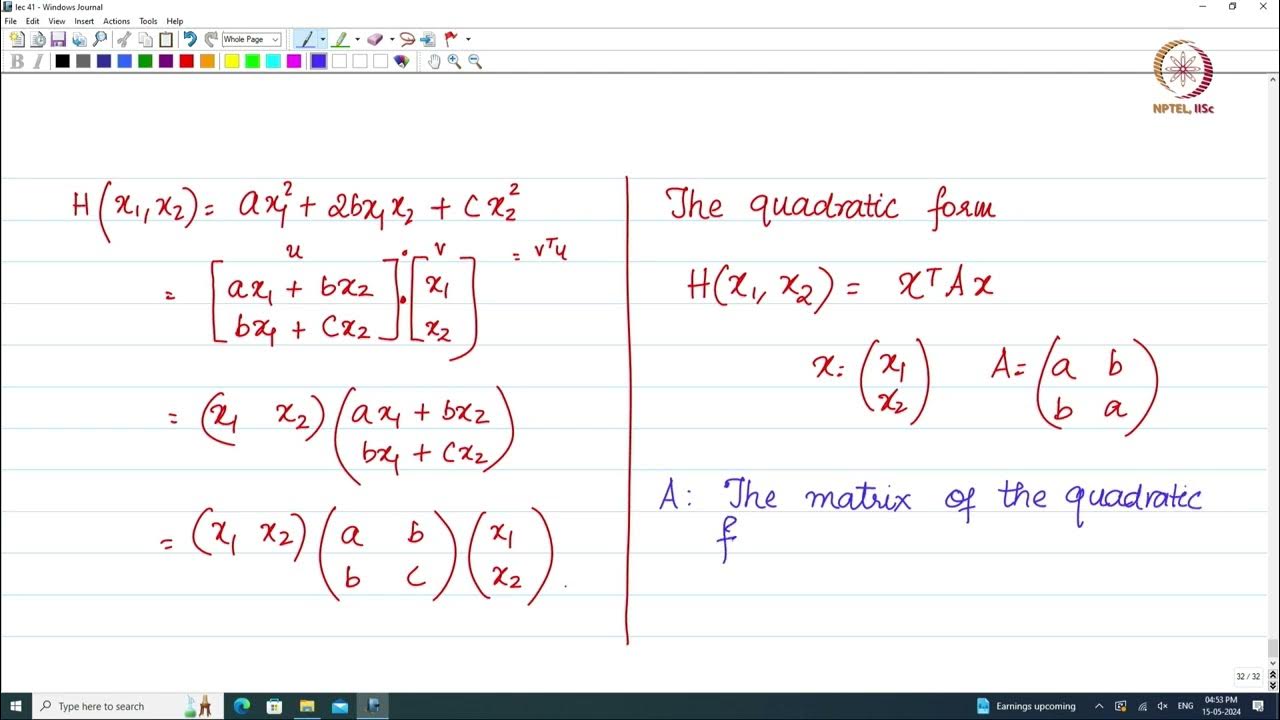 lec 41 - Windows Journal
File Edit View Insert Actions Tools Help
Whole Page
B I
NPTEL, IISc
H(x₁, x₂) = ax₁² + 2bx₁x₂ + cx₂²
u v
= [ax₁ + bx₂ · [x₁ = vᵀu
bx₁ + cx₂] x₂]
= (x₁ x₂) (ax₁ + bx₂
bx₁ + cx₂)
= (x₁ x₂) (a b (x₁
b c) x₂) .
The quadratic form
H(x₁, x₂) = xᵀAx
x = (x₁ A = (a b
x₂) b a)
A: The matrix of the quadratic
f
32 / 32
Type here to search
Earnings upcoming
ENG
04:53 PM
15-05-2024